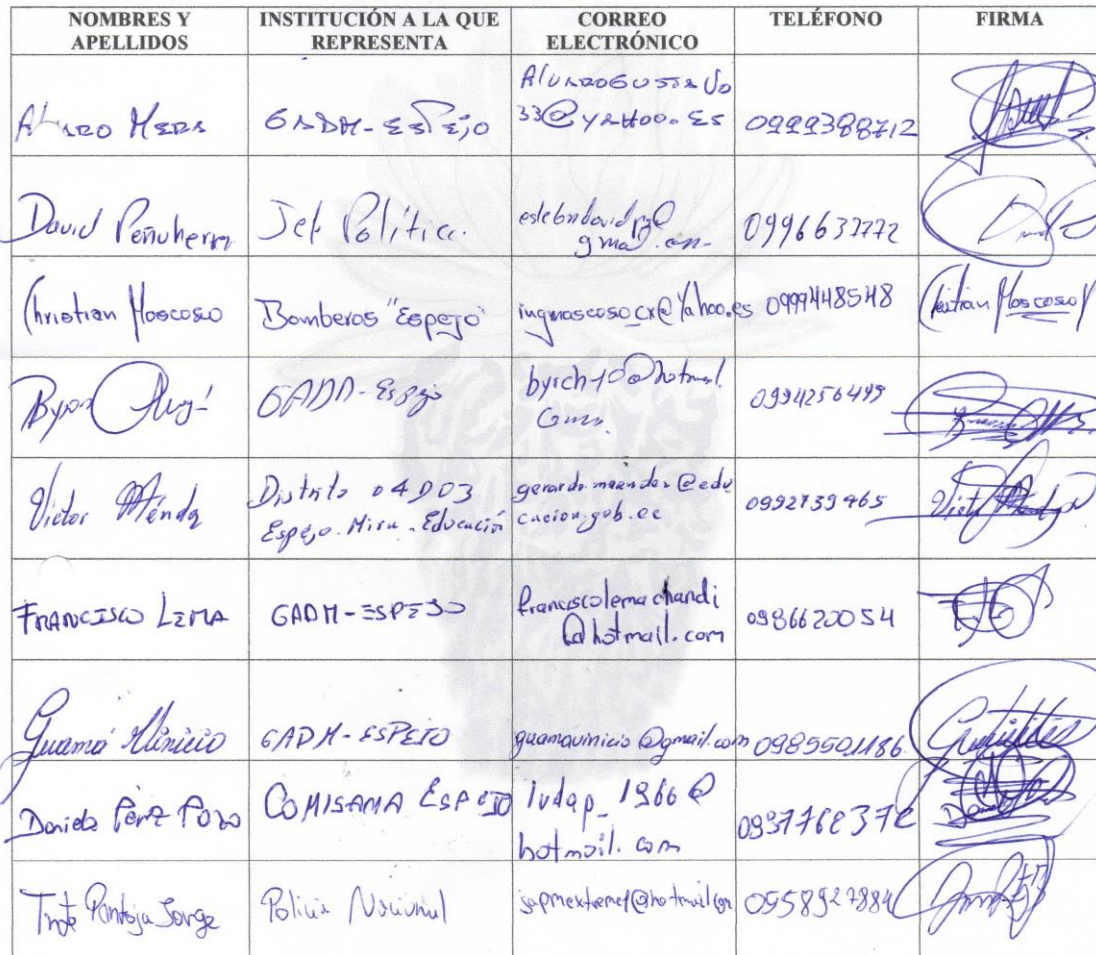 NOMBRES Y APELLIDOS
INSTITUCIÓN A LA QUE REPRESENTA
CORREO ELECTRÓNICO
TELÉFONO
FIRMA
Alvaro Mera
GADM-Espejo
Alvarogustavo
33@yahoo.es
0999388712
David Peñuherra
Jef. Política.
0996637772
Christian Moscoso
Bomberos "Espejo"
ingmoscoso_cx@yahoo.es
0999448548
Christian Moscoso
Byron
GADM-Espejo
byrch-10@hotmail.
com
0994256499
Victor Méndez
Distrito 04D03
Espejo-Mira-Educación
@edu
cacion.gob.ec
0992739465
Francisco Lema
GADM-ESPEJO
franciscolemachandi
@hotmail.com
0986620054
Guamá Vinicio
GADM-ESPEJO
guamavinicio@gmail.com
0985501186
Daniela Pérez Pozo
COMISARIA ESPEJO
ludap_1966@
hotmail.com
Pantoja Jorge
Policía Nacional